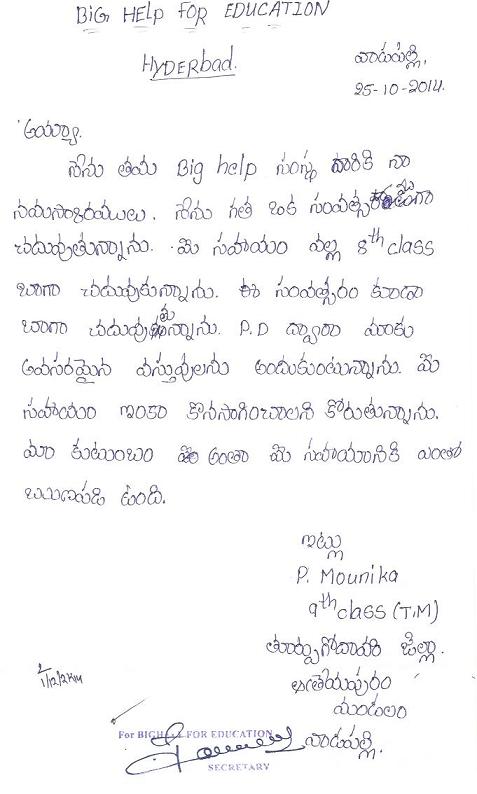 BiG HELP FOR EDUCATION
HYDERbad.
వాడపల్లి,
25-10-2014.
అయ్యా.
నేను తమ Big help సంస్థ వారికి నా
నమస్కారములు. నేను గత ఒక సంవత్సరముగా
చదువుతున్నాను. మీ సహాయం వల్ల 8th class
బాగా చదువుకున్నాను. ఈ సంవత్సరం కూడా
బాగా చదువుతున్నాను. P.D ద్వారా మాకు
అవసరమైన వస్తువులను అందుకుంటున్నాను. మీ
సహాయం ఇంకా కొనసాగించాలని కోరుతున్నాను.
మా కుటుంబం అంతా మీ సహాయానికి ఎంతో
ఋణపడి ఉంది.
ఇట్లు
P. Mounika
9th class (T.M)
తూర్పుగోదావరి జిల్లా.
ఆత్రేయపురం
మండలం
వాడపల్లి.
For BIG HELP FOR EDUCATION
SECRETARY